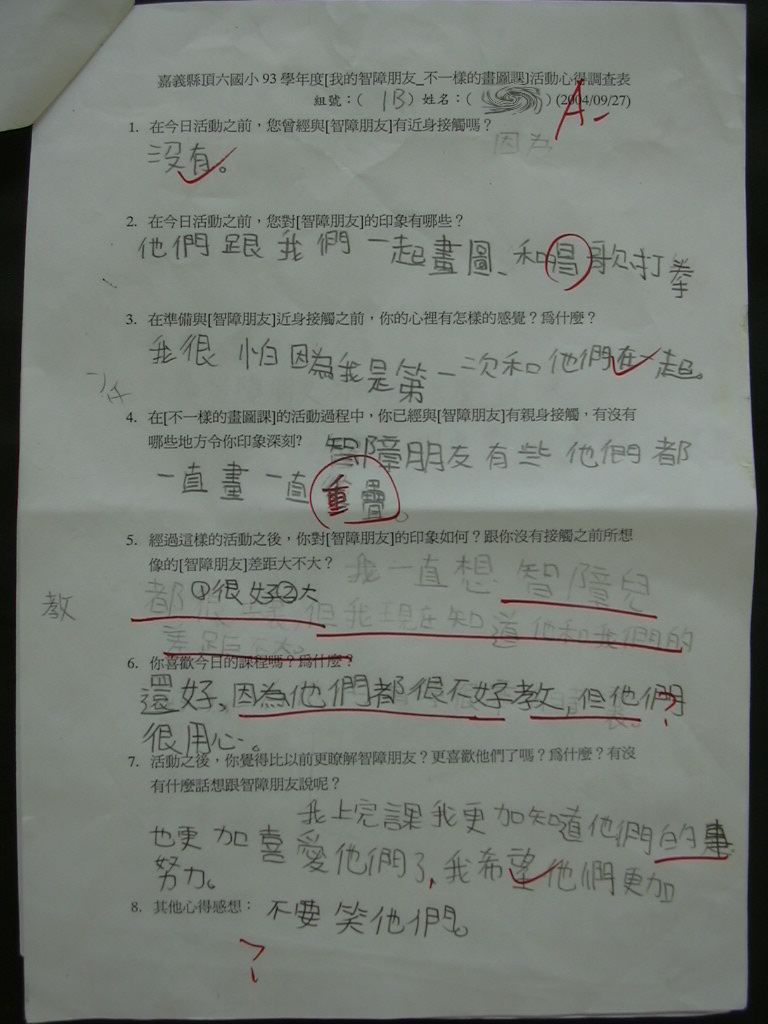 嘉義縣頂六國小93學年度[我的智障朋友_不一樣的畫圖課]活動心得調查表
組號:( 1B ) 姓名:( ) (2004/09/27)
A-
1. 在今日活動之前,您曾經與[智障朋友]有近身接觸嗎?
因為
沒有。
2. 在今日活動之前,您對[智障朋友]的印象有哪些?
他們跟我們一起畫圖、和唱歌打拳
3. 在準備與[智障朋友]近身接觸之前,你的心裡有怎樣的感覺?為什麼?
我很怕因為我是第一次和他們在一起。
4. 在[不一樣的畫圖課]的活動過程中,你已經與[智障朋友]有親身接觸,有沒有
哪些地方令你印象深刻?
智障朋友有些他們都
一直畫一直重疊。
5. 經過這樣的活動之後,你對[智障朋友]的印象如何?跟你沒有接觸之前所想
像的[智障朋友]差距大不大?
我一直想智障兒
①很好②大
都很 但我現在知道他和我們的
教
差距
6. 你喜歡今日的課程嗎?為什麼?
還好、因為他們都很不好教,但他們
?
很用心。
7. 活動之後,你覺得比以前更瞭解智障朋友?更喜歡他們了嗎?為什麼?有沒
有什麼話想跟智障朋友說呢?
我上完課我更加知道他們的事
也更加喜愛他們了,我希望他們更加
努力。
8. 其他心得感想: 不要笑他們。
?